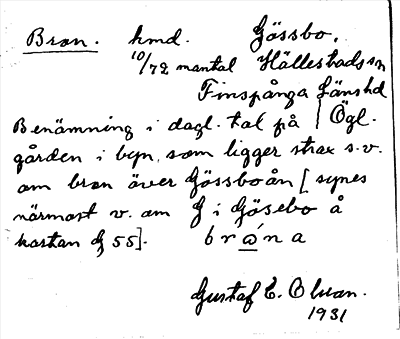 Bron. hmd. Gössbo,
10/72 mantal Hällestads sn
Finspånga länshd
Benämning i dagl. tal på Ögl.
gården i byn, som ligger strax s.v.
om bron över Gössboån [synes
närmast v. om G i Gösebo å
kartan G 55]. bròna
Gustaf E. Olson.
1931